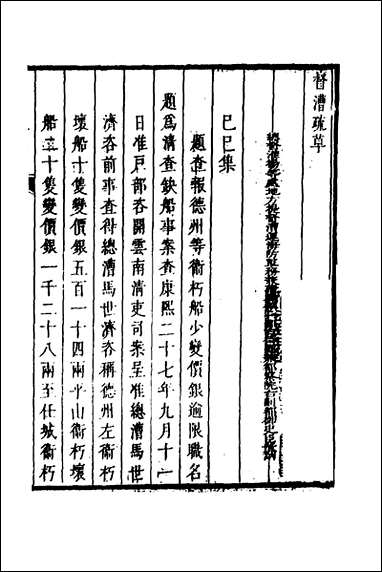 督漕疏草
總督淮揚等處地方提督漕運海防軍務兼
己巳集
題查報德州等衛朽船少變價銀逾限職名
題爲清查缺船事案查康熙二十七年九月十一
日准戶部咨開雲南清吏司案呈准總漕馬世
濟咨前事查得總漕馬世濟咨稱德州左衛朽
壞船十隻變價銀五百一十四兩平山衛朽壞
船二十隻變價銀一千二十八兩至任城衛朽